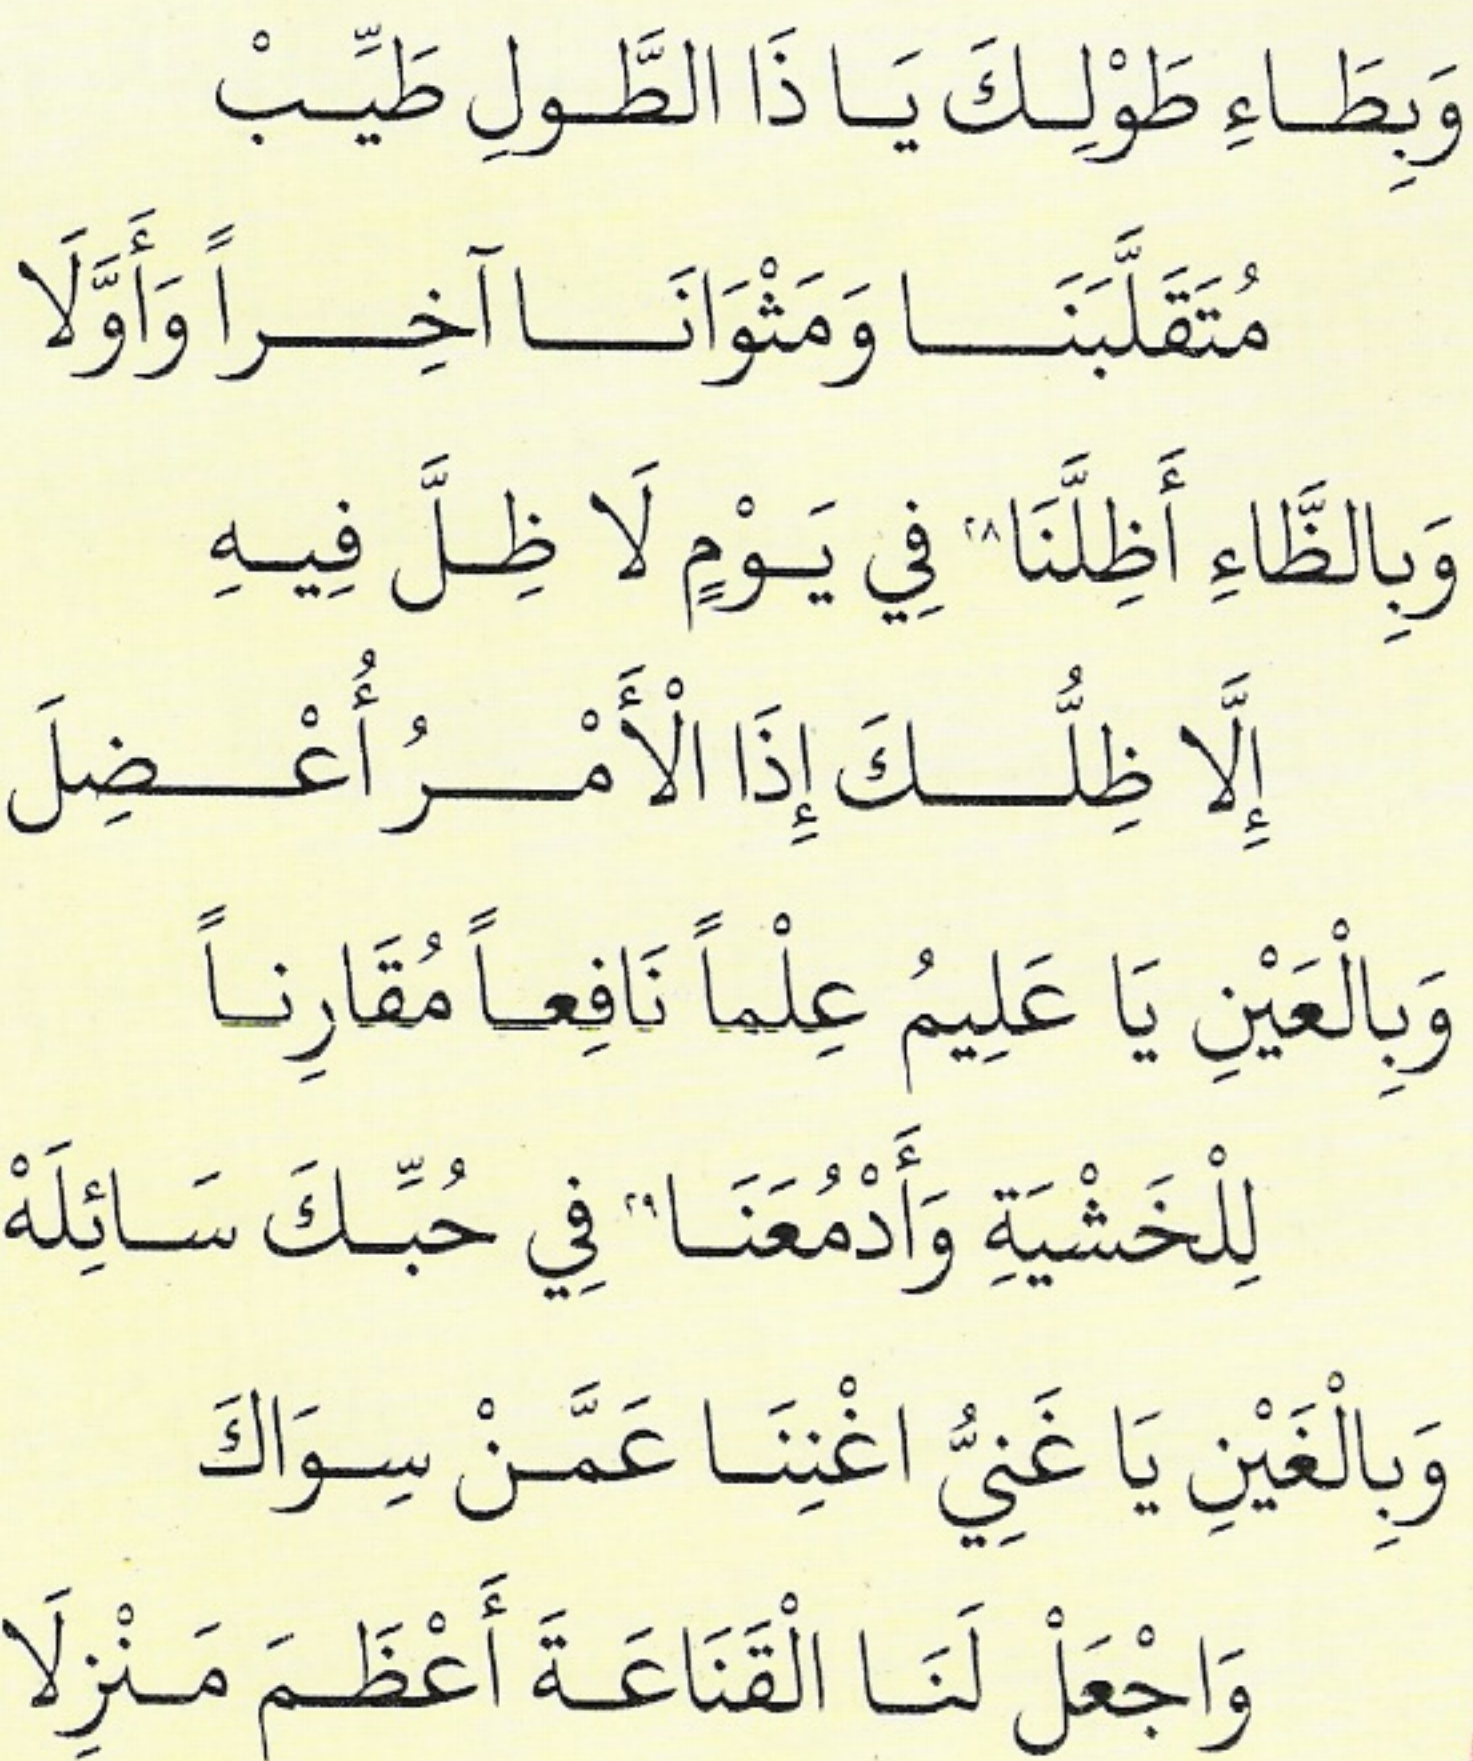 وَبِطَاءِ طَوْلِكَ يَا ذَا الطَّولِ طَيِّبْ
مُتَقَلَّبَنَا وَمَثْوَانَا آخِراً وَأَوَّلَا
وَبِالظَّاءِ أَظِلَّنَا٢٨ فِي يَوْمٍ لَا ظِلَّ فِيهِ
إِلَّا ظِلُّكَ إِذَا الْأَمْرُ أُعْضِلَ
وَبِالْعَيْنِ يَا عَلِيمُ عِلْماً نَافِعاً مُقَارِناً
لِلْخَشْيَةِ وَأَدْمُعَنَا٢٩ فِي حُبِّكَ سَائِلَهْ
وَبِالْغَيْنِ يَا غَنِيُّ اغْنِنَا عَمَّنْ سِوَاكَ
وَاجْعَلْ لَنَا الْقَنَاعَةَ أَعْظَمَ مَنْزِلَا